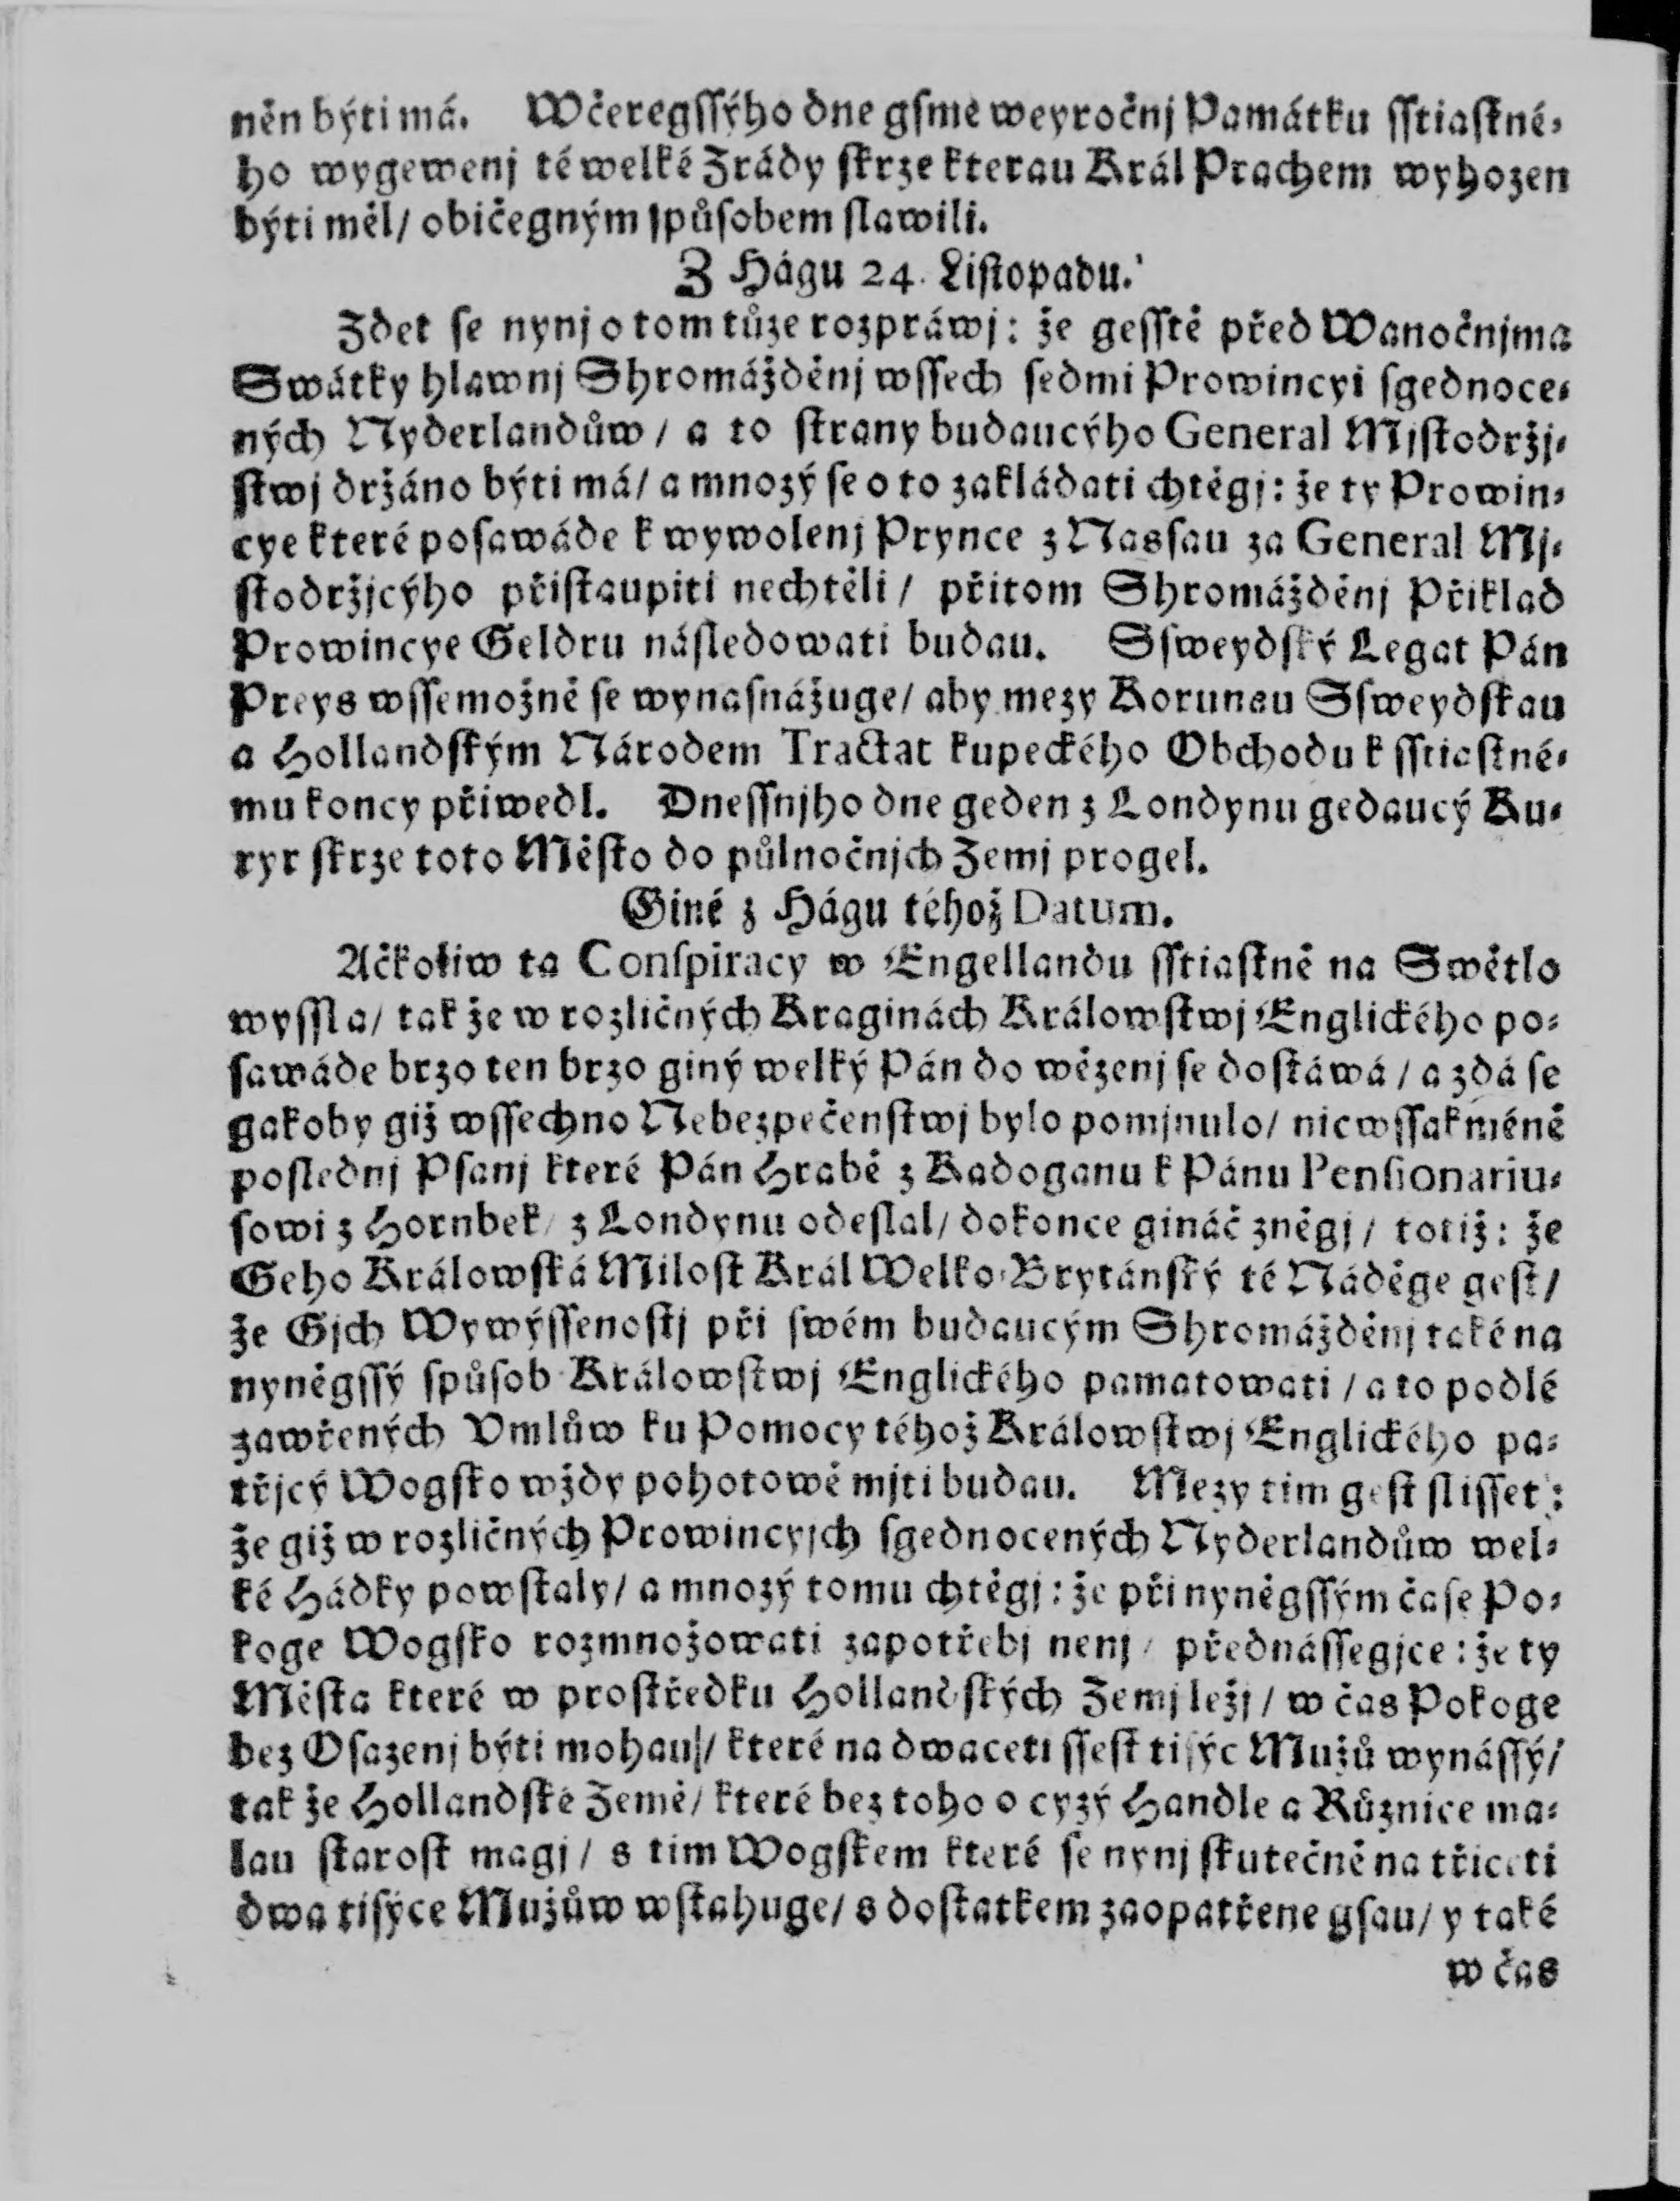 něn býti má. Wčeregſſýho dne gſme weyročnj Památku ſſtiaſtné⸗
ho wygewenj té welké Zrády ſkrze kterau Král Prachem wyhozen
býti měl/ običegným ſpůſobem ſlawili.
Z Hágu 24. Liſtopadu.
Zdet ſe nynj o tom tůze rozpráwj: že geſſtě před Wanočnjma
Swátky hlawnj Shromážděnj wſſech ſedmi Prowincyi ſgednoce⸗
ných Nyderlandůw / a to ſtrany budaucýho General Mjſtodržj⸗
ſtwj držáno býti má/ a mnozý ſe o to zakládati chtěgj: že ty Prowin⸗
cye které poſawáde k wywolenj Prynce z Naſſau za General Mj⸗
ſtodržjcýho přiſtaupiti nechtěli / přitom Shromážděnj Přiklad
Prowincye Geldru náſledowati budau. Sſweydſký Legat Pán
Preys wſſemožně ſe wynaſnážuge/ aby mezy Korunau Sſweydſkau
a Hollandſkým Národem Tractat kupeckého Obchodu k ſſtiaſtné⸗
mu koncy přiwedl. Dneſſnjho dne geden z Londynu gedaucý Ku⸗
ryr ſkrze toto Měſto do půlnočnjch Zemj progel.
Giné z Hágu téhož Datum.
Ačkoliw ta Conſpiracy w Engellandu ſſtiaſtně na Swětlo
wyſſla/ tak že w rozličných Kraginách Králowſtwj Englického po⸗
ſawáde brzo ten brzo giný welký Pán do wězenj ſe doſtáwá / a zdá ſe
gakoby giž wſſechno Nebezpečenſtwj bylo pomjnulo/ nic wſſak méně
poſlednj Pſanj které Pán Hrabě z Kadoganu k Pánu Penſionariu⸗
ſowi z Hornbek/ z Londynu odeſlal/ dokonce gináč zněgj / totiž: že
Geho Králowſká Miloſt Král Welko⸗Brytánſký té Náděge geſt/
že Gjch Wywýſſenoſtj při ſwém budaucým Shromážděnj také na
nyněgſſý ſpůſob Králowſtwj Englického pamatowati / a to podlé
zawřených Vmlůw ku Pomocy téhož Králowſtwj Englického pa⸗
třjcý Wogſko wždy pohotowě mjti budau. Mezy tim geſt ſliſſet:
že giž w rozličných Prowincyjch ſgednocených Nyderlandůw wel⸗
ké Hádky powſtaly/ a mnozý tomu chtěgj: že při nyněgſſým čaſe Po⸗
koge Wogſko rozmnožowati zapotřebj nenj / přednáſſegjce: že ty
Měſta které w proſtředku Hollandſkých Zemj ležj / w čas Pokoge
bez Oſazenj býti mohau/ které na dwaceti ſſeſt tiſýc Mužů wynáſſý/
tak že Hollandſké Země/ které bez toho o cyzý Handle a Různice ma⸗
lau ſtaroſt magj / s tim Wogſkem které ſe nynj ſkutečně na třiceti
dwa tiſýce Mužůw wſtahuge/ s doſtatkem zaopatřene gſau/ y také
w čas